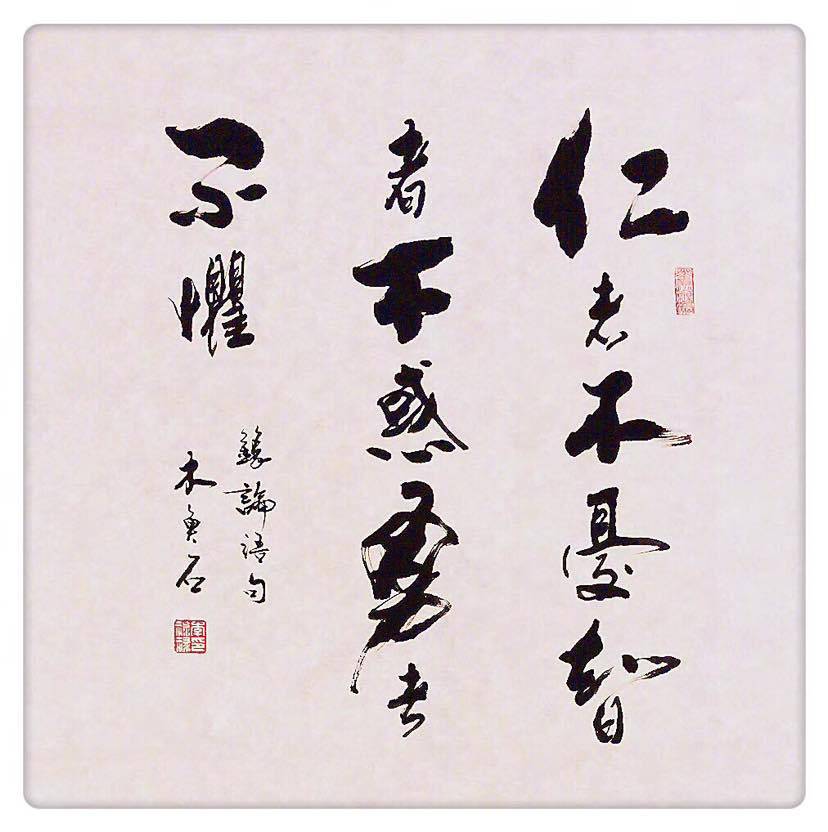 仁者不憂智
者不惑勇者
不懼
錄論語句
木魚石